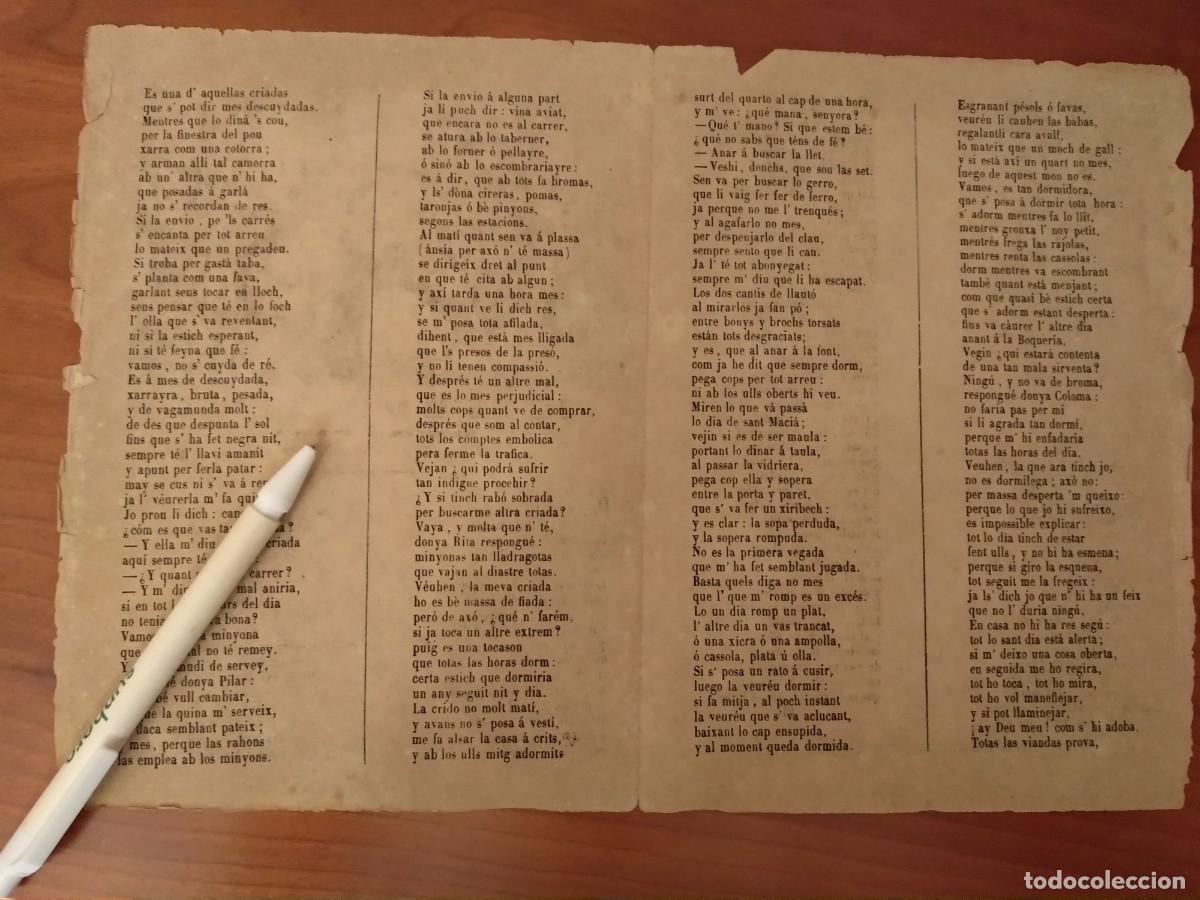 Es una d' aquellas criadas
que s' pot dir mes descuydadas.
Mentres que lo diná 's cou,
per la finestra del pou
xarra com una cotorra ;
y arman allí tal camorra
ab un' altra que n' hi ha,
que posadas á garlá
ja no s' recordan de res.
Si la envio , pe 'ls carrés
s' encanta per tot arreu
lo mateix que un pregadeu.
Si troba per gastá taba,
s' planta com una fava,
garlant sens tocar en lloch,
sens pensar que té en lo foch
l' olla que s' va reventant,
ni si la estich esperant,
ni si té feyna que fé :
vamos , no s' cuyda de ré.
Es á mes de descuydada,
xarrayra, bruta, pesada,
y de vagamunda molt :
de des que despunta l' sol
fins que s' ha fet negra nit,
sempre té l' llavi amanit
y apunt per ferla patar :
may se cus ni s' va á
ja l' véurerla m' fa
Jo prou li dich :
¿cóm es que vas
— Y ella m' criada
aquí sempre té
— ¿Y quant carrer?
— Y m' mal aniria,
si en tot del dia
no tenia bona?
Vamos minyona
que no té remey.
Y de servey,
donya Pilar :
vull cambiar,
la quina m' serveix,
semblant pateix ;
mes, perque las rahons
las emplea ab los minyons.
Si la envio á alguna part
ja li puch dir : vina aviat,
que encara no es al carrer,
se atura ab lo taberner,
ab lo forner ó pellayre,
ó sinó ab lo escombrariayre :
es á dir, que ab tots fa bromas,
y ls' dòna cireras, pomas,
taronjas ó bè pinyons,
segons las estacions.
Al matí quant sen va á plassa
( ànsia per axó n' té massa )
se dirigeix dret al punt
en que té cita ab algun ;
y axí tarda una hora mes :
y si quant ve li dich res,
se m' posa tota afilada,
dihent, que està mes lligada
que l's presos de la presó,
y no li tenen compassió.
Y després té un altre mal,
que es lo mes perjudicial :
molts cops quant ve de comprar,
després que som al contar,
tots los comptes embolica
pera ferme la trafica.
Vejan ¿ qui podrá sufrir
tan indigne procehir?
¿Y si tinch rahó sobrada
per buscarme altra criada?
Vaya , y molta que n' té,
donya Rita respongué :
minyonas tan lladragotas
que vajan al diastre totas.
Véuhen , la meva criada
ho es bè massa de fiada :
peró de axó, ¿qué n' farém,
si ja toca un altre extrem?
puig es una tocason
que totas las horas dorm :
certa estich que dormiria
un any seguit nit y dia.
La crido no molt matí,
y avans no s' posa á vestí,
me fa alsar la casa á crits,
y ab los ulls mitg adormits
surt del quarto al cap de una hora,
y m' ve : ¿qué mana, senyora?
—Qué t' mano? Si que estem bé :
¿qué no sabs que téns de fé?
— Anar á buscar la llet.
—Veshi, donchs, que son las set.
Sen va per buscar lo gerro,
que li vaig fer fer de ferro,
ja perque no me l' trenqués ;
y al agafarlo no mes,
per despenjarlo del clau,
sempre sento que li cau.
Ja l' té tot abonyegat :
sempre m' diu que li ha escapat.
Los dos cantis de llautó
al mirarlos ja fan pó ;
entre bonys y brochs torsats
están tots desgraciats ;
y es , que al anar á la font,
com ja he dit que sempre dorm,
pega cops per tot arreu :
ni ab los ulls oberts hi veu.
Miren lo que vá passà
lo dia de sant Macià ;
vejin si es de ser maula :
portant lo dinar á taula,
al passar la vidriera,
pega cop ella y sopera
entre la porta y paret,
que s' va fer un xiribech :
y es clar : la sopa perduda,
y la sopera rompuda.
No es la primera vegada
que m' ha fet semblant jugada.
Basta quels diga no mes
que l' que m' romp es un excés.
Lo un dia romp un plat,
l' altre dia un vas trancat,
ó una xicra ó una ampolla,
ó cassola, plata ú olla.
Si s' posa un rato á cusir,
luego la veuréu dormir :
si fa mitja , al poch instant
la veuréu que s' va aclucant,
baixant lo cap ensupida,
y al moment queda dormida.
Esgranant pésols ó favas,
veuréu li cauhen las babas,
regalantli cara avall,
lo mateix que un moch de gall ;
y si está axí un quart no mes,
luego de aquest mon no es.
Vamos , es tan dormidora,
que s' posa á dormir tota hora :
s' adorm mentres fa lo llit,
mentres gronxa l' noy petit,
mentrés frega las rajolas,
mentres renta las cassolas :
dorm mentres va escombrant
també quant está menjant ;
com que quasi bè estich certa
que s' adorm estant desperta :
fins va càurer l' altre dia
anant á la Boquería.
Vegin ¿qui estará contenta
de una tan mala sirventa?
Ningú , y no va de broma,
respongué donya Coloma :
no faria pas per mi
si li agrada tan dormí,
perque m' hi enfadaria
totas las horas del dia.
Veuhen , la que ara tinch jo,
no es dormilega ; axó no :
per massa desperta 'm queixo :
perque lo que jo hi sufreixo,
es impossible explicar :
tot lo dia tinch de estar
fent ulls , y no hi ha esmena ;
perque si giro la esquena,
tot seguit me la fregeix :
ja ls' dich jo que n' hi ha un feix
que no l' duria ningú.
En casa no hi ha res segú :
tot lo sant dia está alerta ;
si m' deixo una cosa oberta,
en seguida me ho regira,
tot ho toca , tot ho mira,
tot ho vol maneflejar,
y si pot llaminejar,
¡ay Deu meu ! com s' hi adoba.
Totas las viandas prova,
todocoleccion